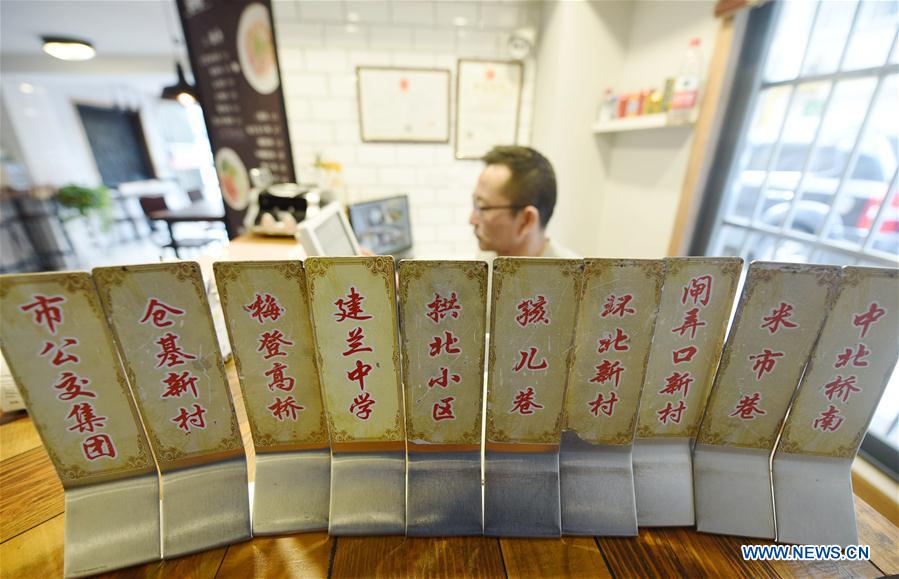 市公交集团
仓基新村
梅登高桥
建兰中学
拱北小区
孩儿巷
环北新村
闸弄口新村
米市巷
中北桥南
WWW.NEWS.CN